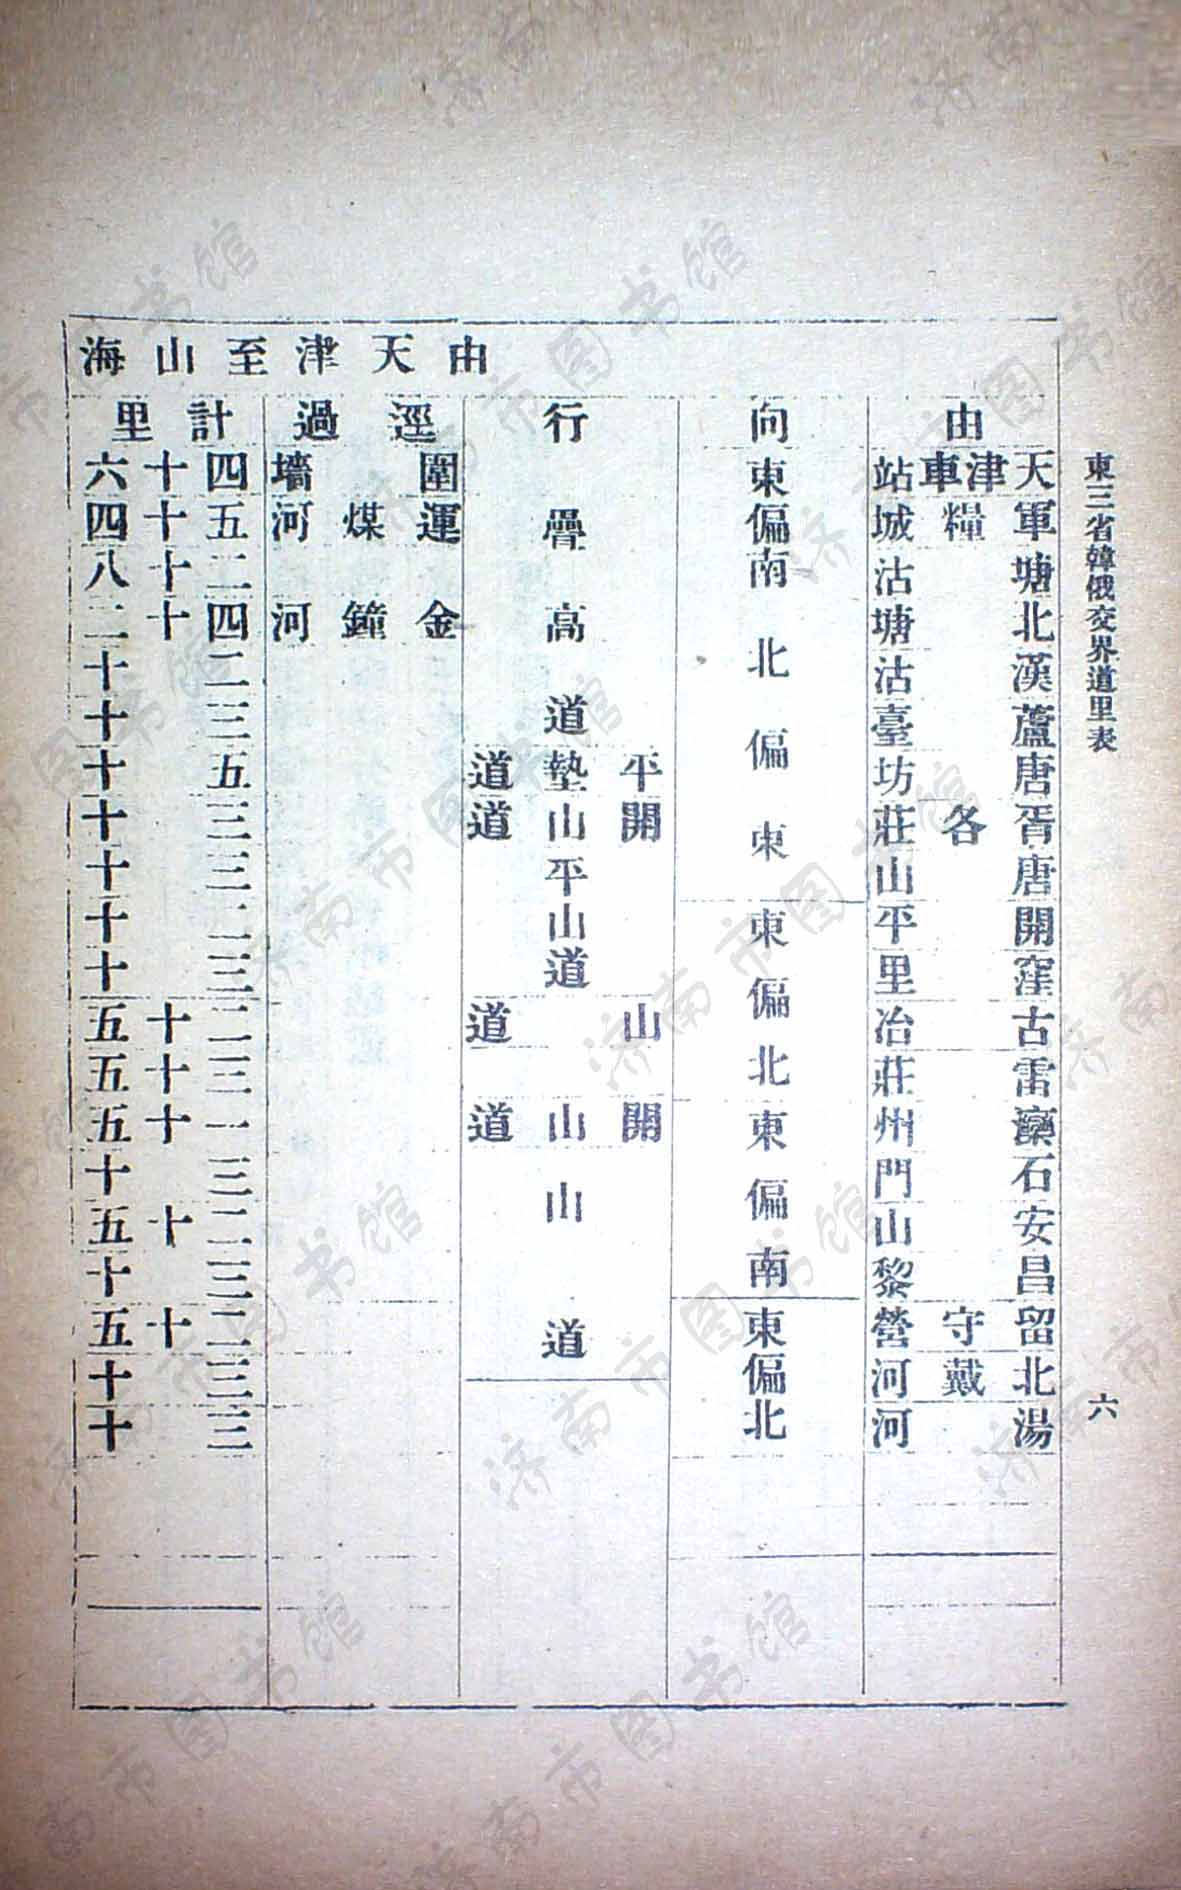 東三省韓俄交界道里表
六
由天津至山海
由
天津車站
軍糧城
塘沽
北塘
漢沽
蘆臺
唐坊
胥各莊
唐山
開平
窪里
古冶
雷莊
灤州
石門
安山
昌黎
留守營
北戴河
湯河
向
東偏南
北偏東
東偏北
東偏南
東偏北
行
疊高道
平墊道
開山道
平山道
山道
開山道
山道
逕過
圍墻
運煤河
金鐘河
計里
四十六
五十四
二十八
四十二
二十
三十
五十
三十
三十
二十
三十
二十五
三十五
一十五
三十
二十五
三十
二十五
三十
三十
济南市图书馆